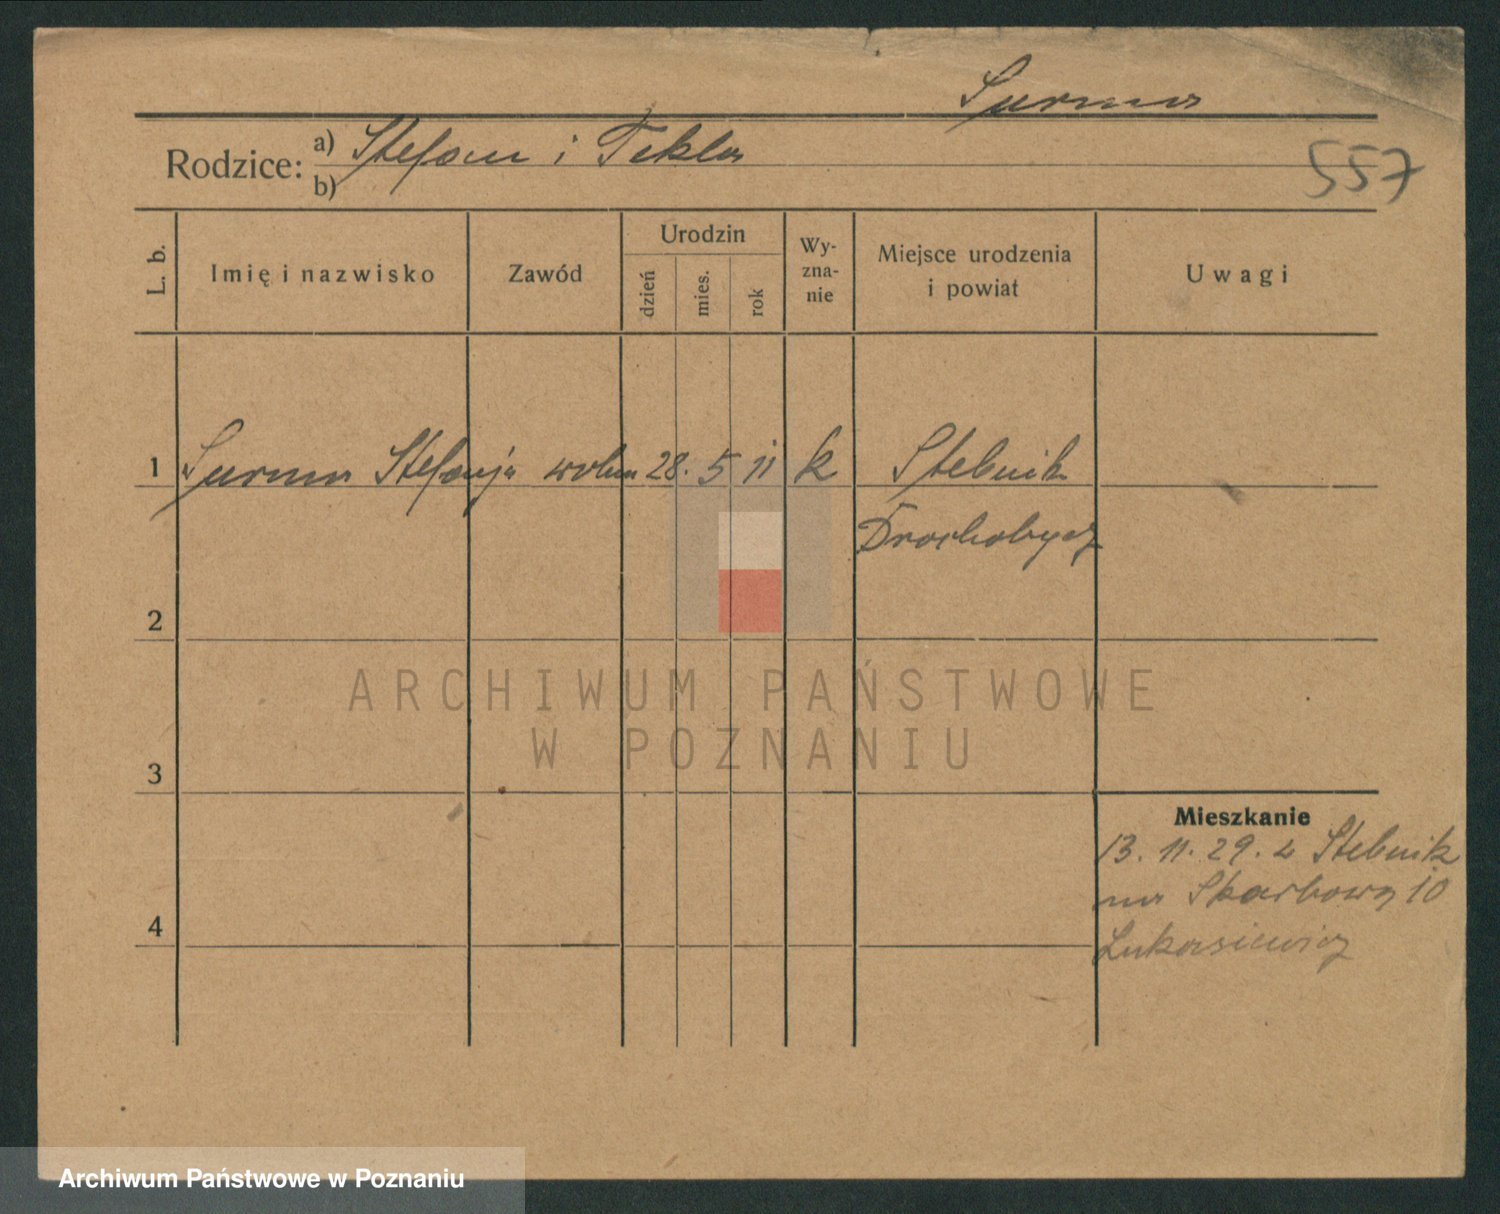 Surma
Rodzice: a) Stefan i Tekla
b)
557
L. b.
Imię i nazwisko
Zawód
Urodzin
dzień
mies.
rok
Wy-
zna-
nie
Miejsce urodzenia
i powiat
Uwagi
1 Surma Stefanja wolna 28. 5 11 k Stebnik
Drochobycz
2
3
4
Mieszkanie
13. 11. 29. z Stebnik
na Skarbową 10
Lukasiewicz
ARCHIWUM PAŃSTWOWE
W POZNANIU
Archiwum Państwowe w Poznaniu